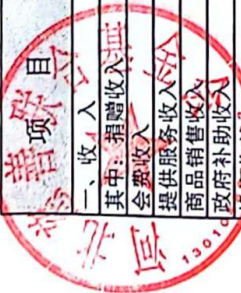 项 目
一、收 入
其中：捐赠收入
会费收入
提供服务收入
商品销售收入
政府补助收入
河北
慈善
基金会
13010